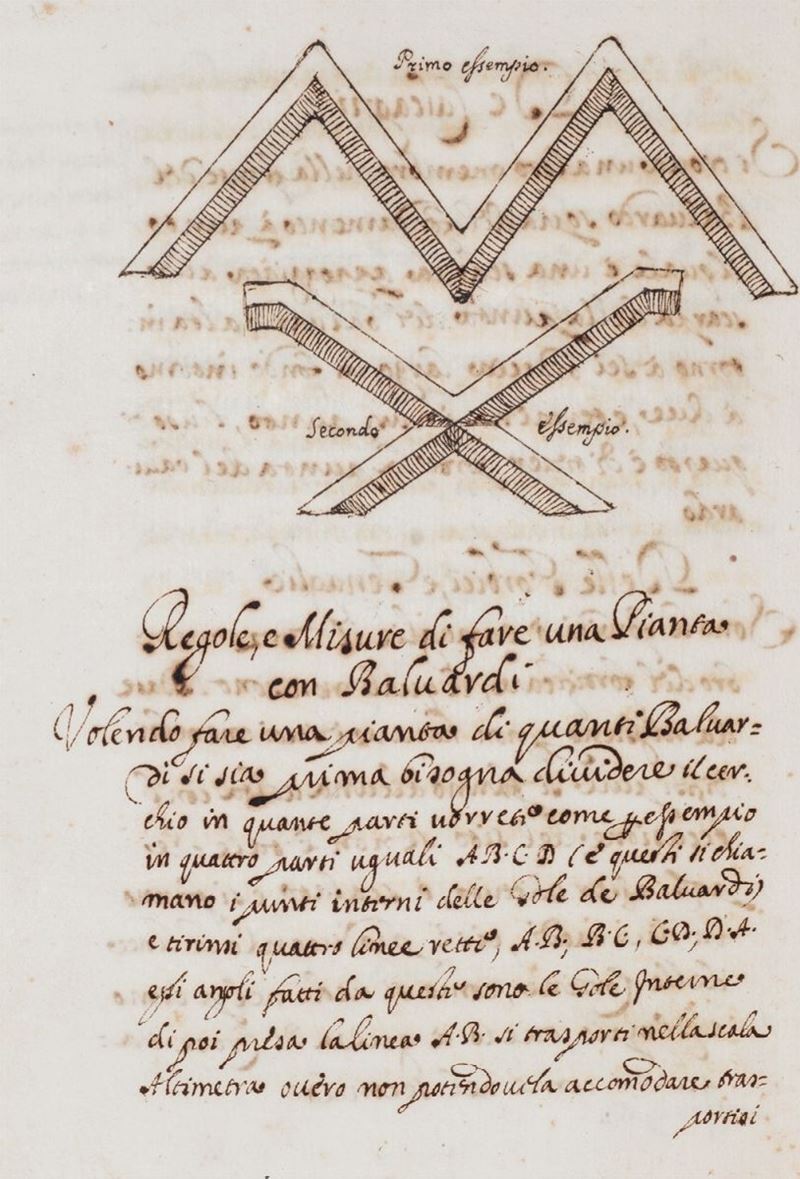 Primo essempio.
Secondo essempio.
Regole, e Misure di fare una Pianta
con Baluardi
Volendo fare una pianta di quanti Baluar=
di si sia prima bisogna dividere il cer.
chio in quante parti vorrete come per essempio
in quattro parti uguali A·B·C·D (e questi si chia=
mano i punti interni delle Gole de Baluardi)
e tirinsi quattro linee rette, A·B, B·C, C·D, D·A·
e gli angoli fatti da queste sono le Gole Interne
di poi presa la linea A·B· si trasporti nella scala
Altimetra overo non potendovela accomodare tras=
portisi